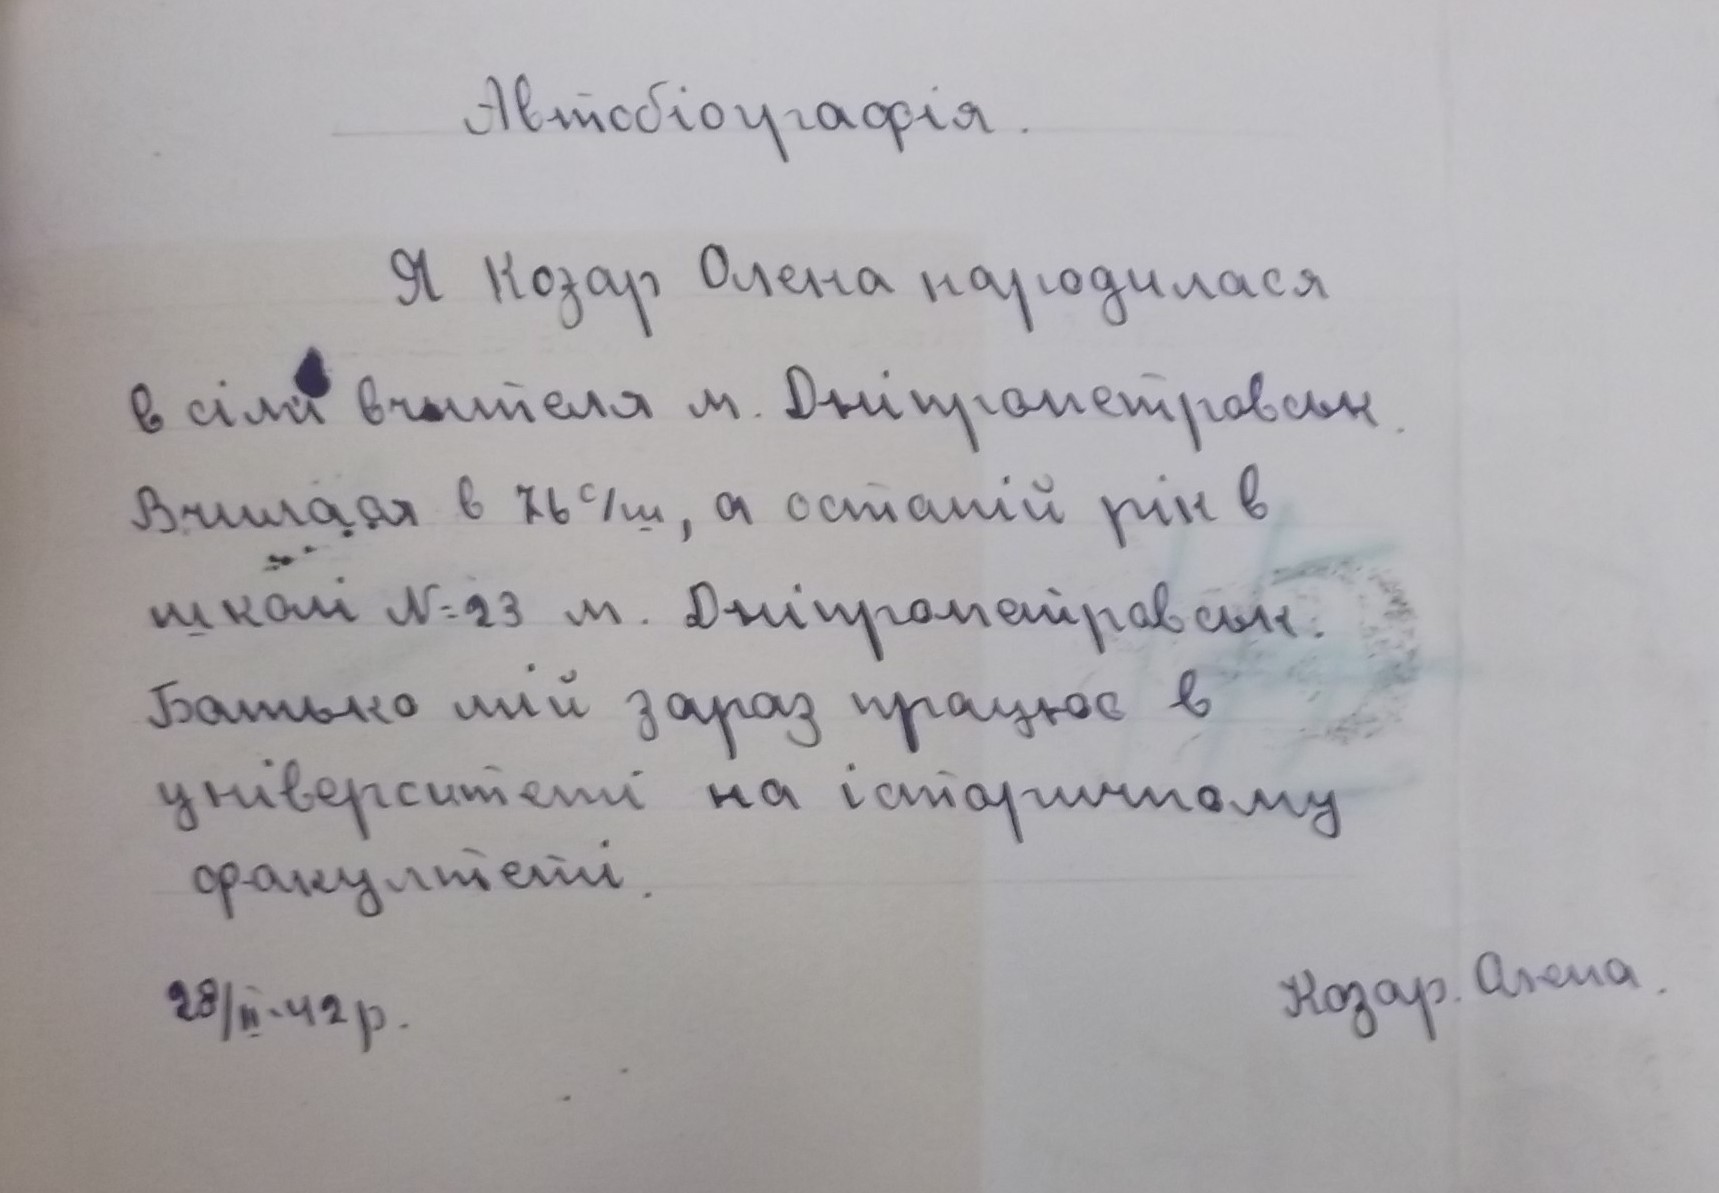 Автобіографія.
Я Козар Олена народилася
в сімї вчителя м. Дніпропетровськ.
Вчилася в 76 с/ш, а останій рік в
школі №23 м. Дніпропетровськ.
Батько мій зараз працює в
університеті на історичному
факултеті.
28/II-42 р.
Козар. Олена.